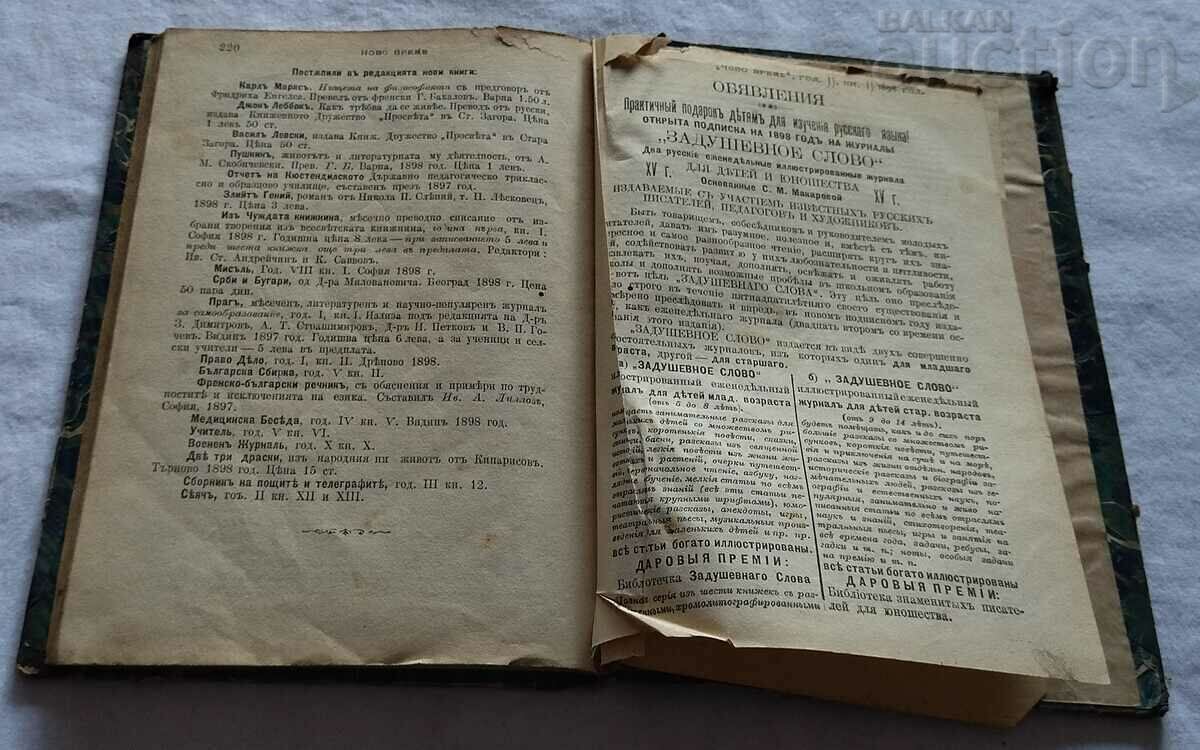 BALKAN
auction
220
НОВО ВРЕМЕ
Постѫпили въ редакцията нови книги:
Карлъ Марксъ. Нищета на философията съ предговоръ отъ
Фридриха Енгелса. Превелъ отъ френски Г. Бакаловъ. Варна 1.50 л.
Джонъ Леббокъ. Какъ трѣбва да се живѣе. Преводъ отъ русски,
издава Книжовното Дружество „Просвѣта" въ Ст. Загора. Цѣна
1 левъ 50 ст.
Василъ Левски, издава Книж. Дружество „Просвѣта" въ Стара
Загора. Цѣна 50 ст.
Пушкинъ, животътъ и литературната му дѣятелность, отъ А.
М. Скобичевски. Прев. Г. Б. Варна, 1898 год. Цѣна 1 левъ.
Отчетъ на Кюстендилското Държавно педагогическо трикласс-
но и образцово училище, съставенъ презъ 1897 год.
Злиятъ Гений, романъ отъ Никола П. Слѣпий, т. П. Лѣсковецъ,
1898 г. Цѣна 3 лева.
Изъ Чуждата книжнина, мѣсечно преводно списание отъ из-
брани творения изъ всесвѣтската книжнина, година първа, кн. I.
София 1898 г. Годишна цѣна 8 лева — при записванието 5 лева и
преди шеста книжка още три лева въ предплата. Редактори:
Ив. Ст. Андрейчинъ и К. Сапвовъ.
Мисъль, Год. VIII кн. I. София 1898 г.
Срби и Бугари, од Д-ра Миловановича. Београд 1898 г. Цена
50 пара дин.
Прагъ, мѣсеченъ, литературенъ и научно-популяренъ журналъ
за самообразование, год. I, кн. I. Излиза подъ редакцията на Д-ръ
З. Димитровъ, А. Т. Страшимировъ, Д-ръ И. Петковъ и В. П. Го-
чевъ. Видинъ 1897 год. Годишна цѣна 6 лева, а за ученици и сел-
ски учители — 5 лева въ предплата.
Право Дѣло, год. I, кн. II. Дрѣново 1898.
Българска Сбирка, год. V кн. II.
Френско-български речникъ, съ обяснения и примѣри по труд-
ноститѣ и исключенията на езика. Съставилъ Ив. А.
София, 1897.
Медицинска Бесѣда, год. IV кн. V. Видинъ 1898 год.
Учитель, год. V кн. VI.
Воененъ Журналъ, год. X кн. X.
Двѣ три драски, изъ народния ни животъ отъ Кипарисовъ.
Търново 1898 год. Цѣна 15 ст.
Сборникъ на пощитѣ и телеграфитѣ, год. III кн. 12.
Сѣячъ, год. II кн. XII и XIII.
ОБЯВЛЕНИЯ
Практичный подарокъ дѣтямъ для изученія русскаго языка!
ОТКРЫТА ПОДПИСКА НА 1898 ГОДЪ НА ЖУРНАЛЫ
„ЗАДУШЕВНОЕ СЛОВО"
Два русскіе еженедѣльные иллюстрированные журнала
XV Г. ДЛЯ ДѢТЕЙ И ЮНОШЕСТВА XV Г.
Основанные С. М. Макаровой
ИЗДАВАЕМЫЕ СЪ УЧАСТІЕМЪ ИЗВѢСТНЫХЪ РУССКИХЪ
ПИСАТЕЛЕЙ, ПЕДАГОГОВЪ И ХУДОЖНИКОВЪ.
Быть товарищемъ, собесѣдникомъ и руководителемъ молодыхъ
читателей, давать имъ разумное, полезное и, вмѣстѣ съ тѣмъ, ин-
тересное и самое разнообразное чтеніе, расширять кругъ ихъ зна-
ній, содѣйствовать развитію у нихъ любознательности и пытливости,
развлекать ихъ, поучая, дополнять, освѣжать и оживлять работу
школы и дополнять возможные пробѣлы въ школьномъ образованіи
— вотъ цѣль „ЗАДУШЕВНАГО СЛОВА". Эту цѣль оно преслѣдо-
вало строго въ теченіе пятнадцатилѣтняго своего существованія и
намѣрено преслѣдовать и впредь, въ новомъ подписномъ году изда-
нія, какъ еженедѣльнаго журнала (двадцать второмъ со времени ос-
нованія этого изданія).
„ЗАДУШЕВНОЕ СЛОВО" издается въ видѣ двухъ совершенно
самостоятельныхъ журналовъ, изъ которыхъ одинъ для младшаго
возраста, другой — для старшаго.
а) „ЗАДУШЕВНОЕ СЛОВО"
иллюстрированный еженедѣльный
журналъ для дѣтей млад. возраста
(отъ 5 до 8 лѣтъ).
занимательные разсказы для
дѣтей со множествомъ ри-
сунковъ, коротенькія повѣсти, сказки,
басни, разсказы изъ священной
легкія повѣсти изъ жизни
и растеній, очерки путешест-
первоначальное чтеніе, азбуку, наг-
обученіе, мелкія статьи по всѣмъ
отраслямъ знаній (всѣ эти статьи пе-
чатаются крупнымъ шрифтомъ), юмо-
ристическіе разсказы, анекдоты, игры,
театральныя пьесы, музыкальныя произ-
веденія для маленькихъ дѣтей и пр. пр.
всѣ статьи богато иллюстрированы.
ДАРОВЫЯ ПРЕМІИ:
Библіотечка Задушевнаго Слова
Полная серія изъ шести книжекъ съ раз-
хромолитографированными
б) „ЗАДУШЕВНОЕ СЛОВО"
иллюстрированный еженедѣльный
журналъ для дѣтей стар. возраста
(отъ 9 до 14 лѣтъ).
будетъ помѣщать, какъ и до сихъ поръ
большіе разсказы со множествомъ ри-
сунковъ, короткія повѣсти, путешест-
вія и приключенія на сушѣ и на морѣ,
разсказы изъ жизни отдѣльн. народовъ,
историческіе разсказы и біографіи за-
мѣчательныхъ людей, разсказы изъ гео-
графіи и естественныхъ наукъ, по-
пулярныя, занимательно и живо на-
писанныя статьи по всѣмъ отраслямъ
наукъ и знаній, стихотворенія, теат-
ральныя пьесы, игры и занятія на
всѣ времена года, задачи, ребусы, загад-
ки и т. п.; ноты, особыя задачи
на премію и т. п.
всѣ статьи богато иллюстрированы
ДАРОВЫЯ ПРЕМІИ:
Библіотека знаменитыхъ писате-
лей для юношества.